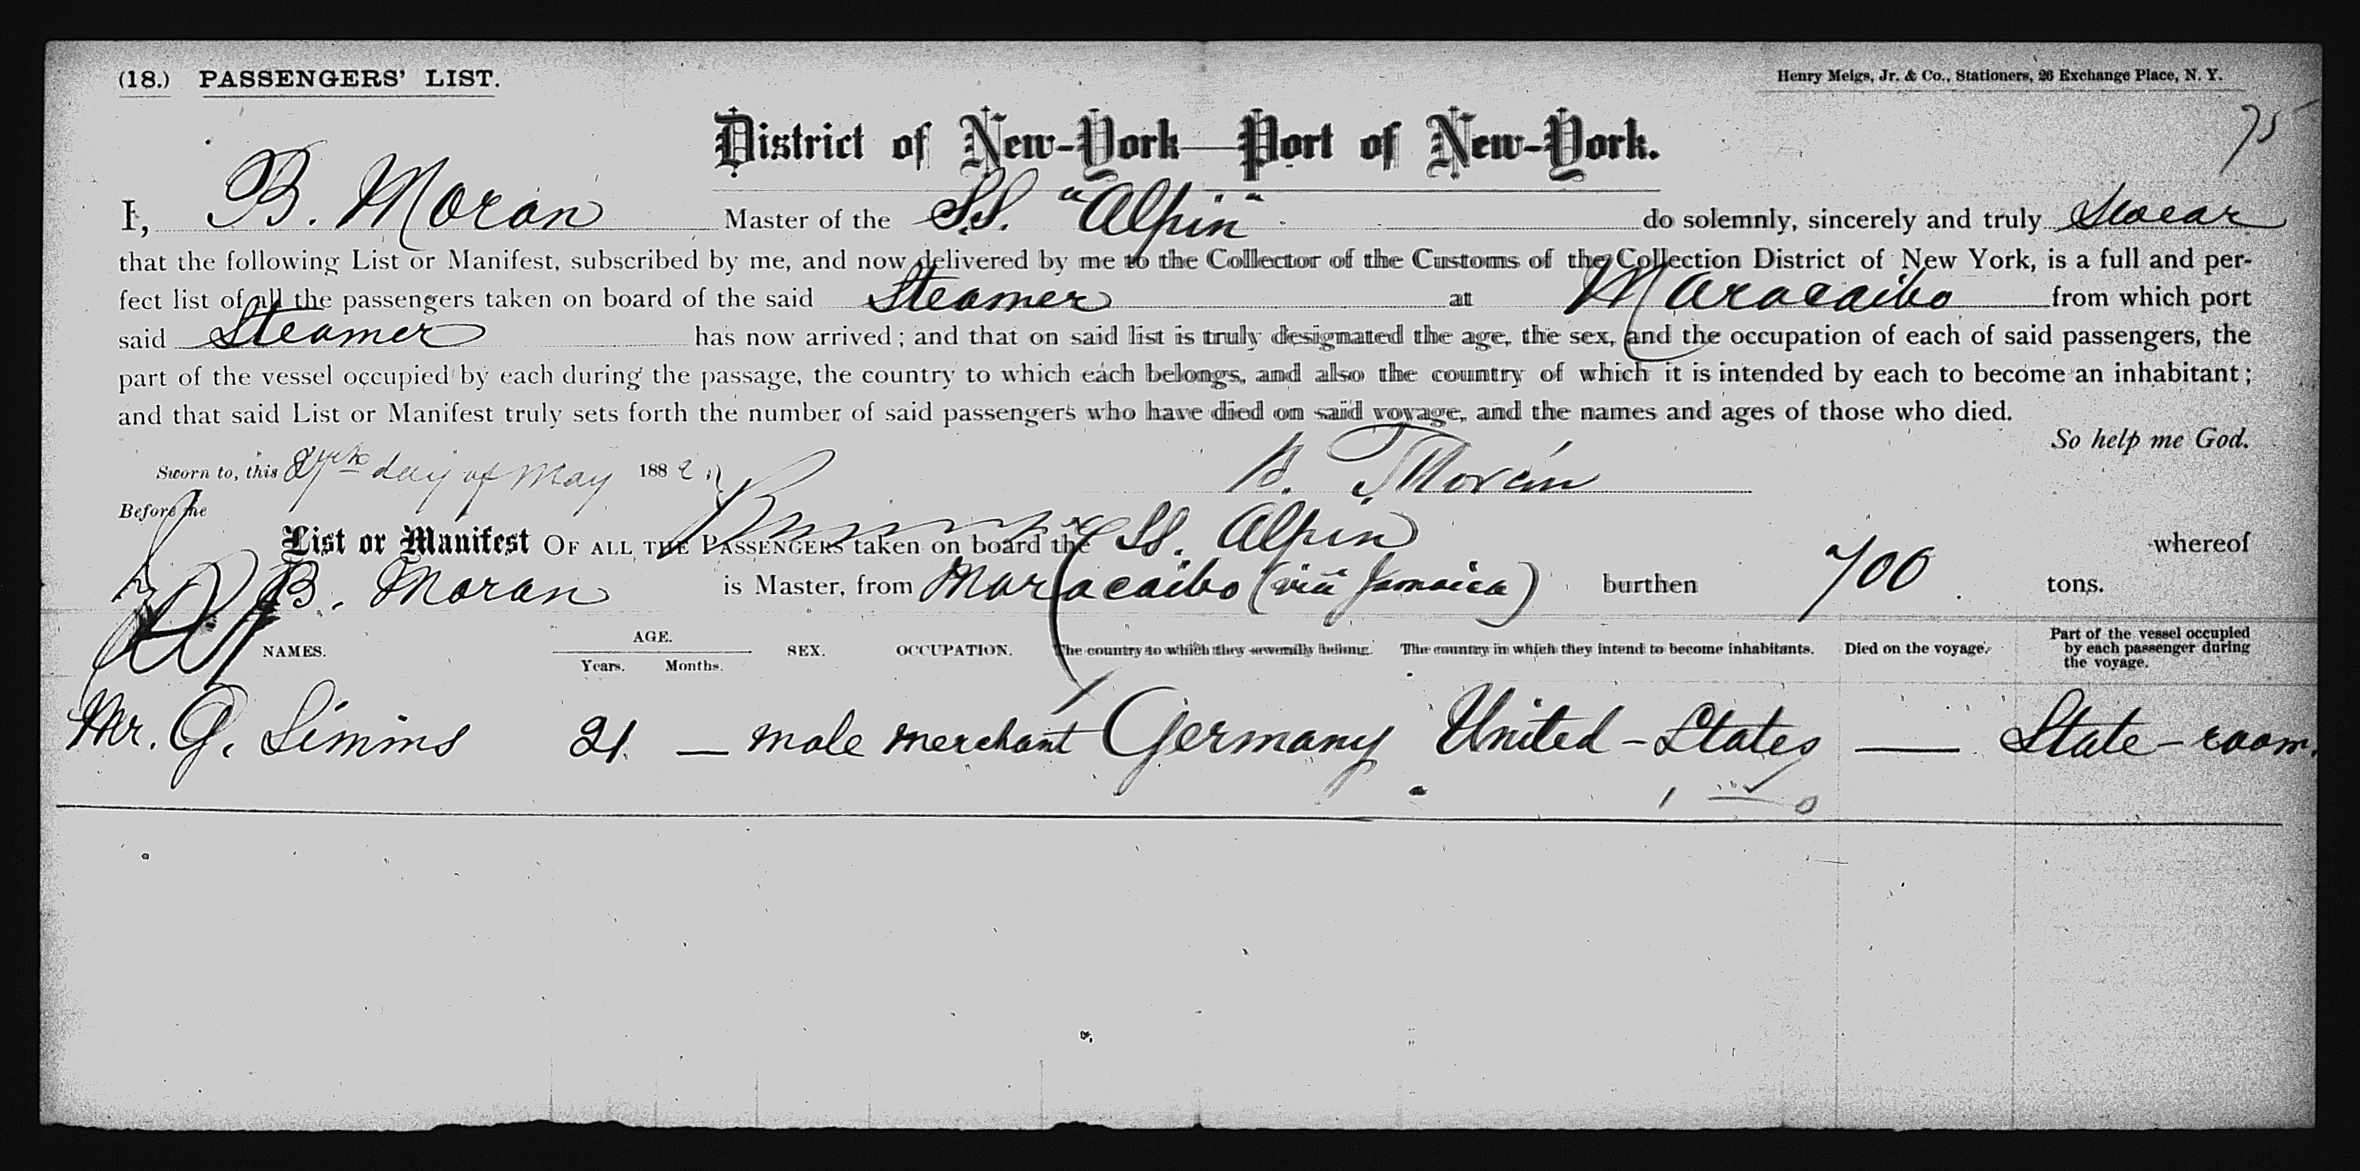 (18.) PASSENGERS' LIST.
Henry Meigs, Jr. & Co., Stationers, 26 Exchange Place, N. Y.
75
District of New-York—Port of New-York.
I, B. Moran Master of the S.S. "Alpin" do solemnly, sincerely and truly Swear
that the following List or Manifest, subscribed by me, and now delivered by me to the Collector of the Customs of the Collection District of New York, is a full and per-
fect list of all the passengers taken on board of the said Steamer at Maracaibo from which port
said Steamer has now arrived; and that on said list is truly designated the age, the sex, and the occupation of each of said passengers, the
part of the vessel occupied by each during the passage, the country to which each belongs, and also the country of which it is intended by each to become an inhabitant;
and that said List or Manifest truly sets forth the number of said passengers who have died on said voyage, and the names and ages of those who died.
So help me God.
Sworn to, this day of May 1882. B. Moran
Before me
List or Manifest OF ALL THE PASSENGERS taken on board the SS. Alpin whereof
B. Moran is Master, from Maracaibo (via Jamaica) burthen 700 tons.
NAMES. AGE. Years. Months. SEX. OCCUPATION. The country to which they severally belong. The country in which they intend to become inhabitants. Died on the voyage. Part of the vessel occupied by each passenger during the voyage.
Mr. G. Simms 21. — male merchant Germany United-States — State-room.